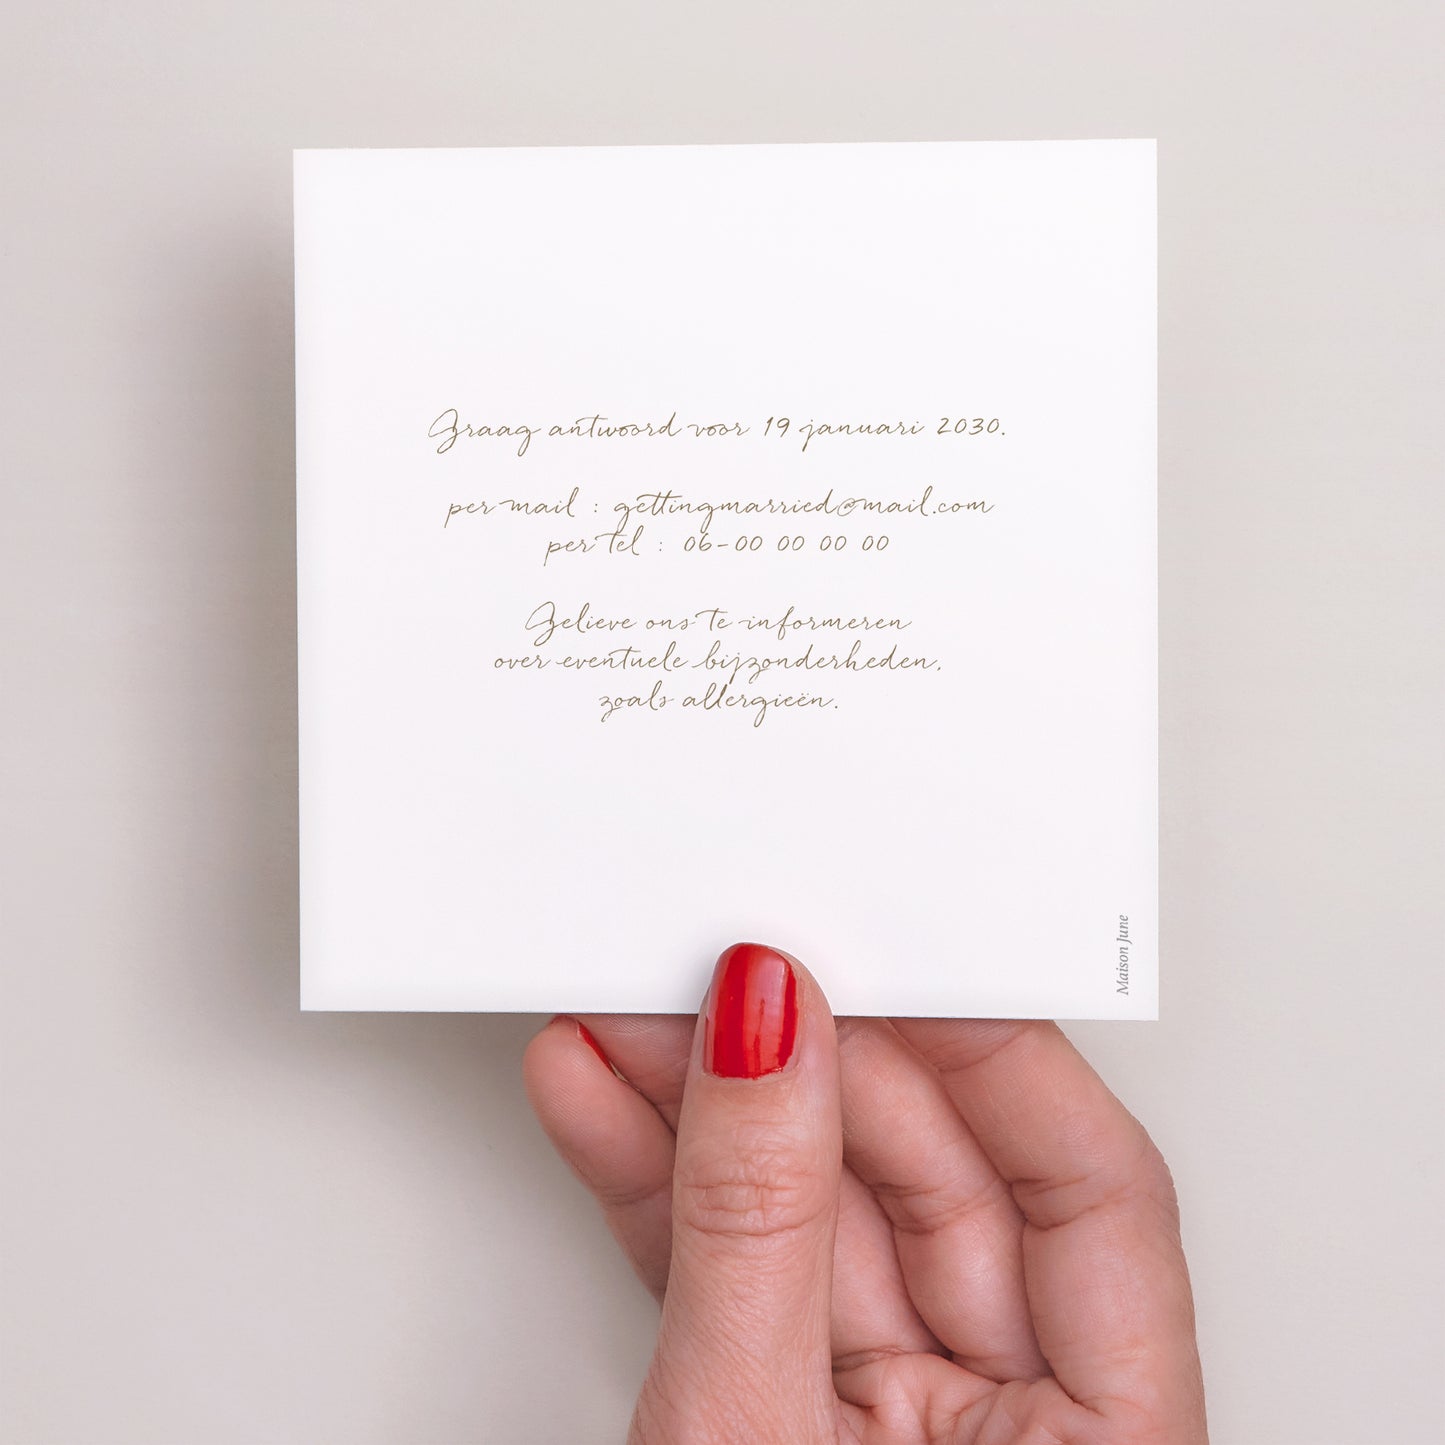 Graag antwoord voor 19 januari 2030.
per mail : gettingmarried@mail.com
per tel : 06-00 00 00 00
Gelieve ons te informeren
over eventuele bijzonderheden,
zoals allergieën.
Maison June